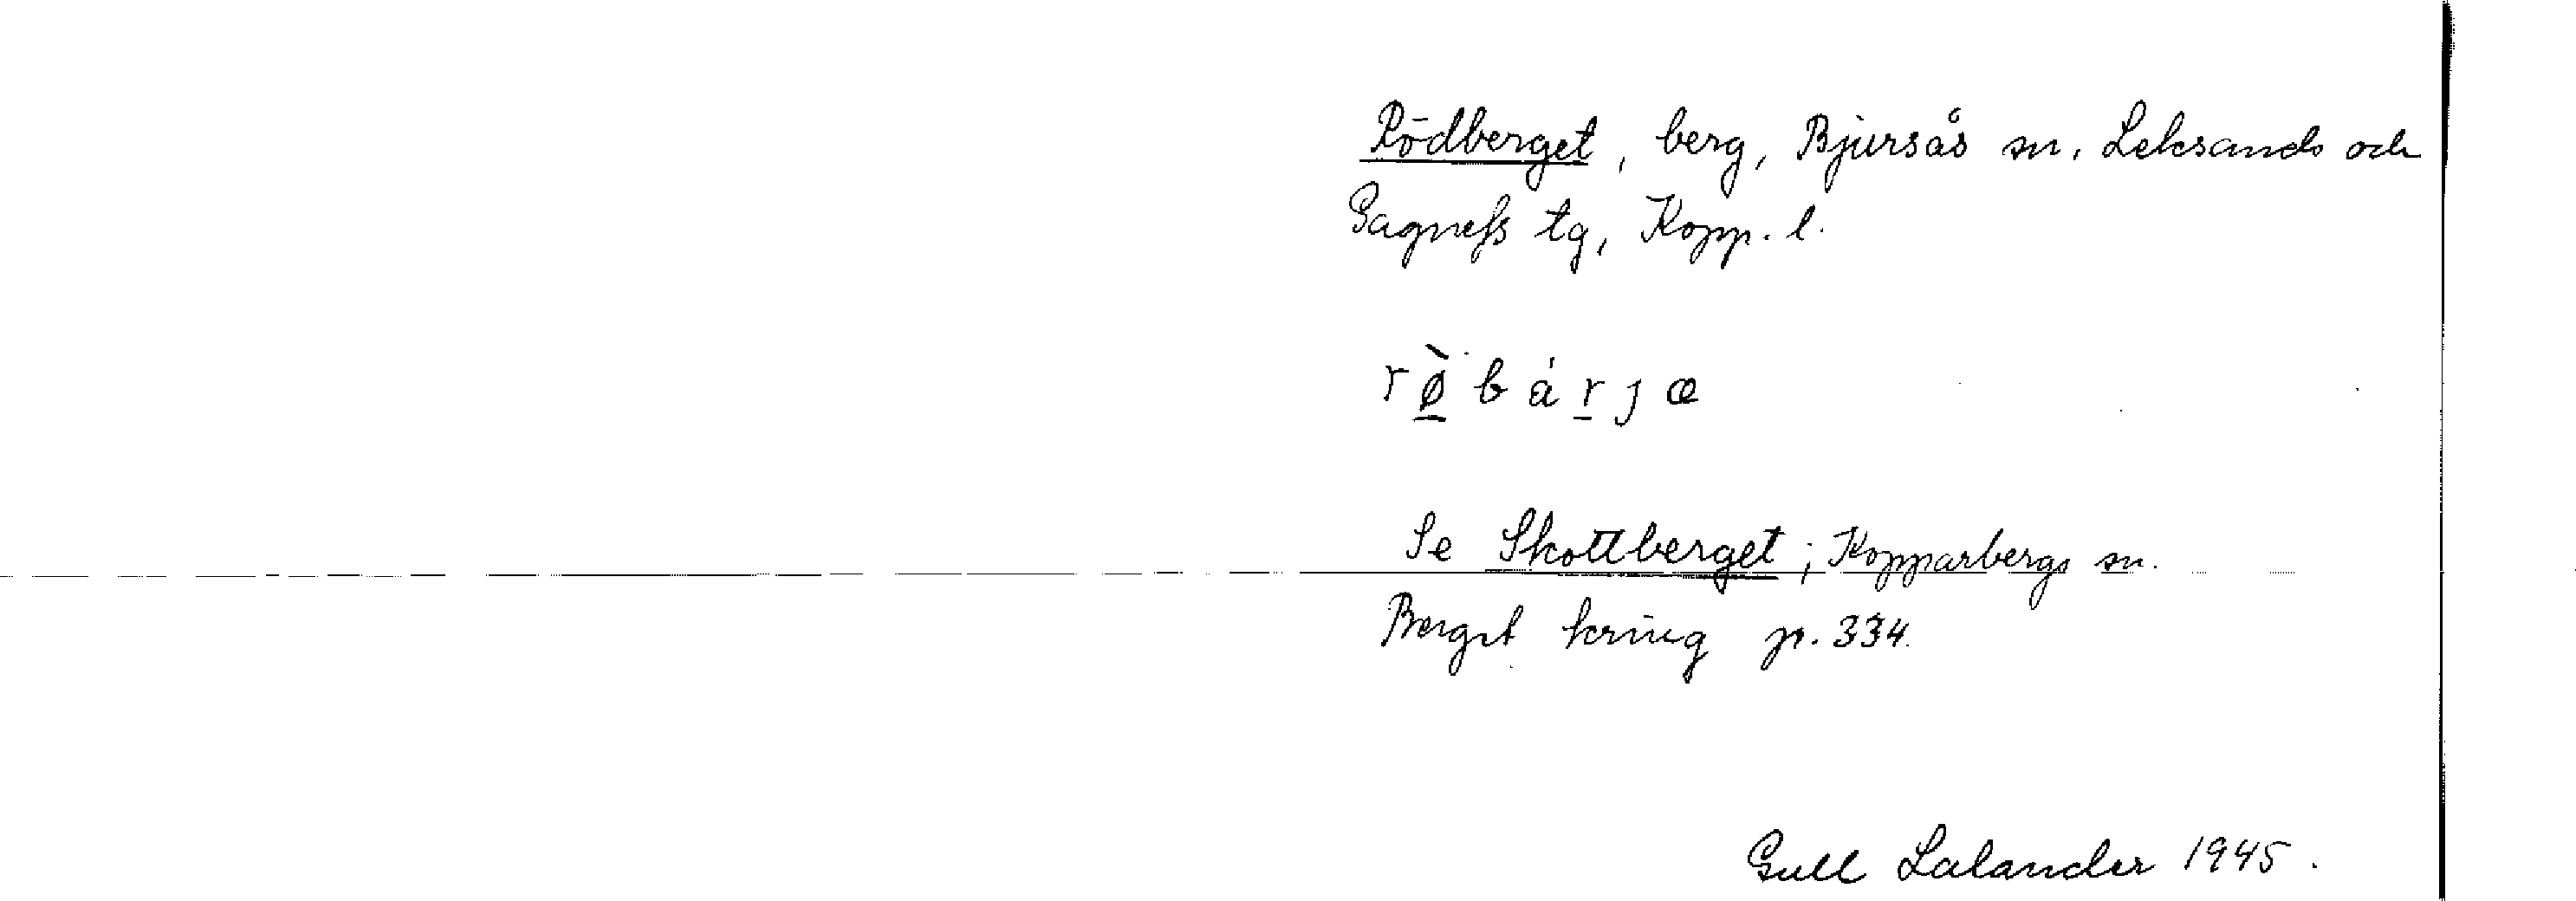 Rödberget, berg, Bjursås sn. Leksands och
Gagnefs tg, Kopp. l.
rø̀bárjæ
Se Skottberget; Kopparbergs sn.
Berget kring p. 334.
Gull Lalander 1945.